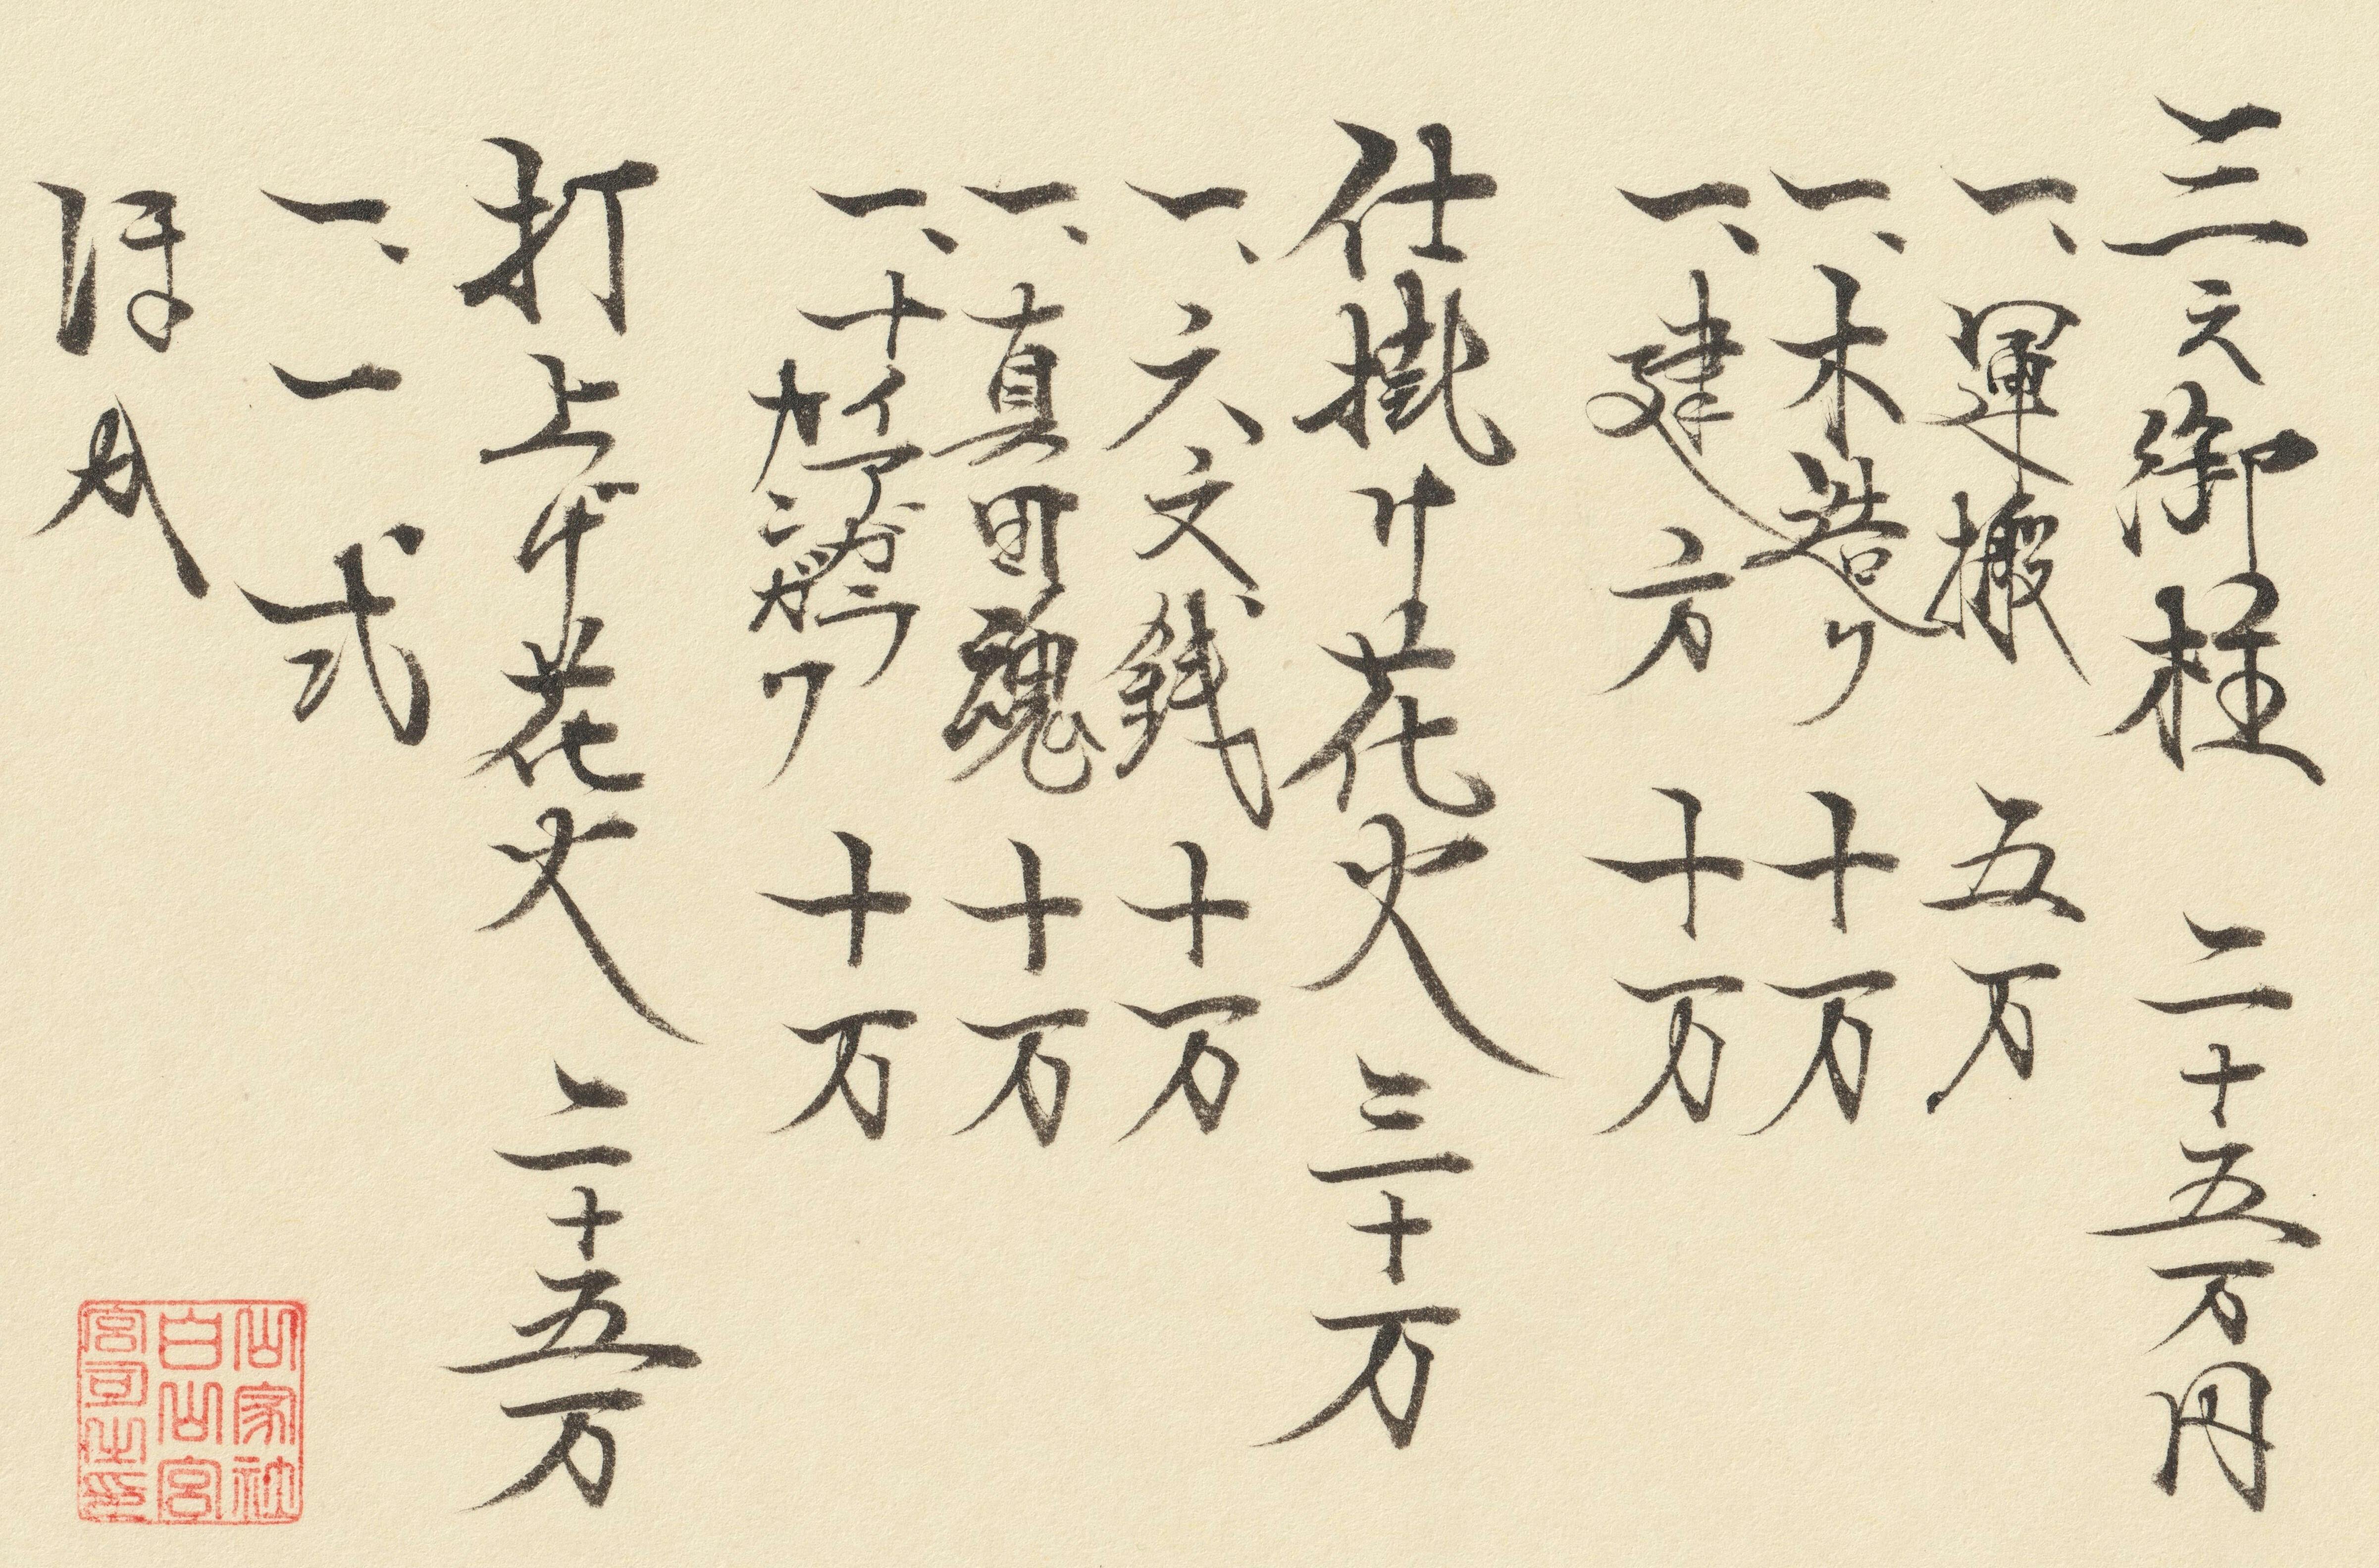 三之御柱 二十五万円
一、運搬 五万
一、木造り 十万
一、建方 十万
仕掛ケ花火 三十万
一、六文銭 十万
一、真田魂 十万
一、ナイアガラ 十万
打上ゲ花火 二十五万
一、一式
ほか
山家社
白山宮
宮司之印